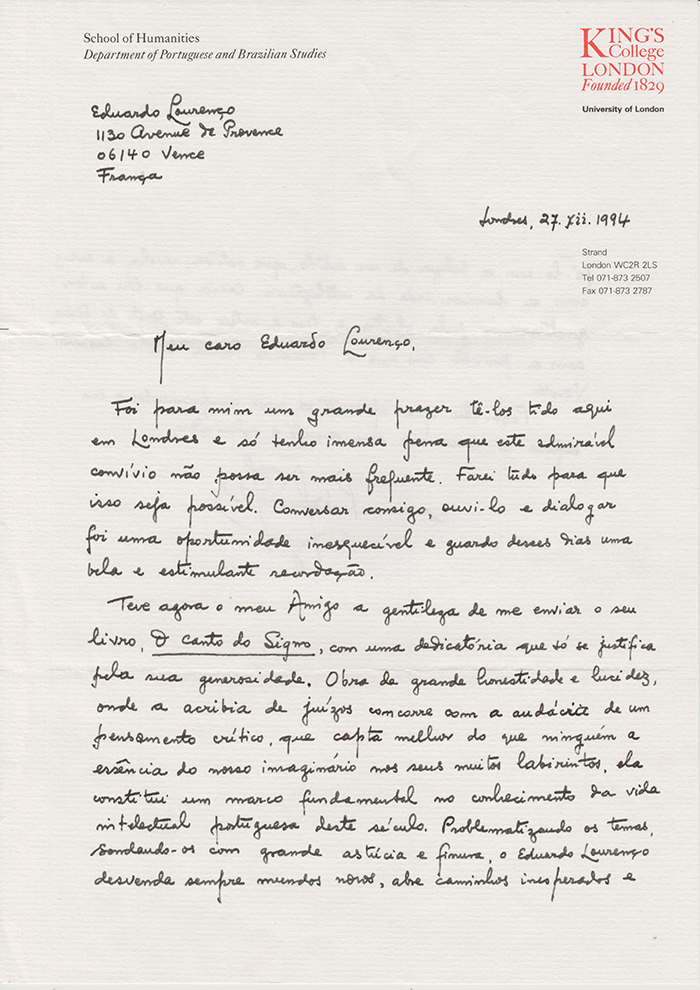 School of Humanities
Department of Portuguese and Brazilian Studies
KING'S
College
LONDON
Founded 1829
University of London
Eduardo Lourenço
1130 Avenue de Provence
06140 Vence
França
Londres, 27.XII.1994
Strand
London WC2R 2LS
Tel 071-873 2507
Fax 071-873 2787
Meu caro Eduardo Lourenço,
Foi para mim um grande prazer tê-los tido aqui
em Londres e só tenho imensa pena que este admirável
convívio não possa ser mais frequente. Farei tudo para que
isso seja possível. Conversar consigo, ouvi-lo e dialogar
foi uma oportunidade inesquecível e guardo desses dias uma
bela e estimulante recordação.
Teve agora o meu Amigo a gentileza de me enviar o seu
livro, O Canto do Signo, com uma dedicatória que só se justifica
pela sua generosidade. Obra de grande honestidade e lucidez,
onde a acribia de juízos concorre com a audácia de um
pensamento crítico, que capta melhor do que ninguém a
essência do nosso imaginário nos seus muitos labirintos, ela
constitui um marco fundamental no conhecimento da vida
intelectual portuguesa deste século. Problematizando os temas,
sondando-os com grande astúcia e finura, o Eduardo Lourenço
desvenda sempre mundos novos, abre caminhos inesperados e